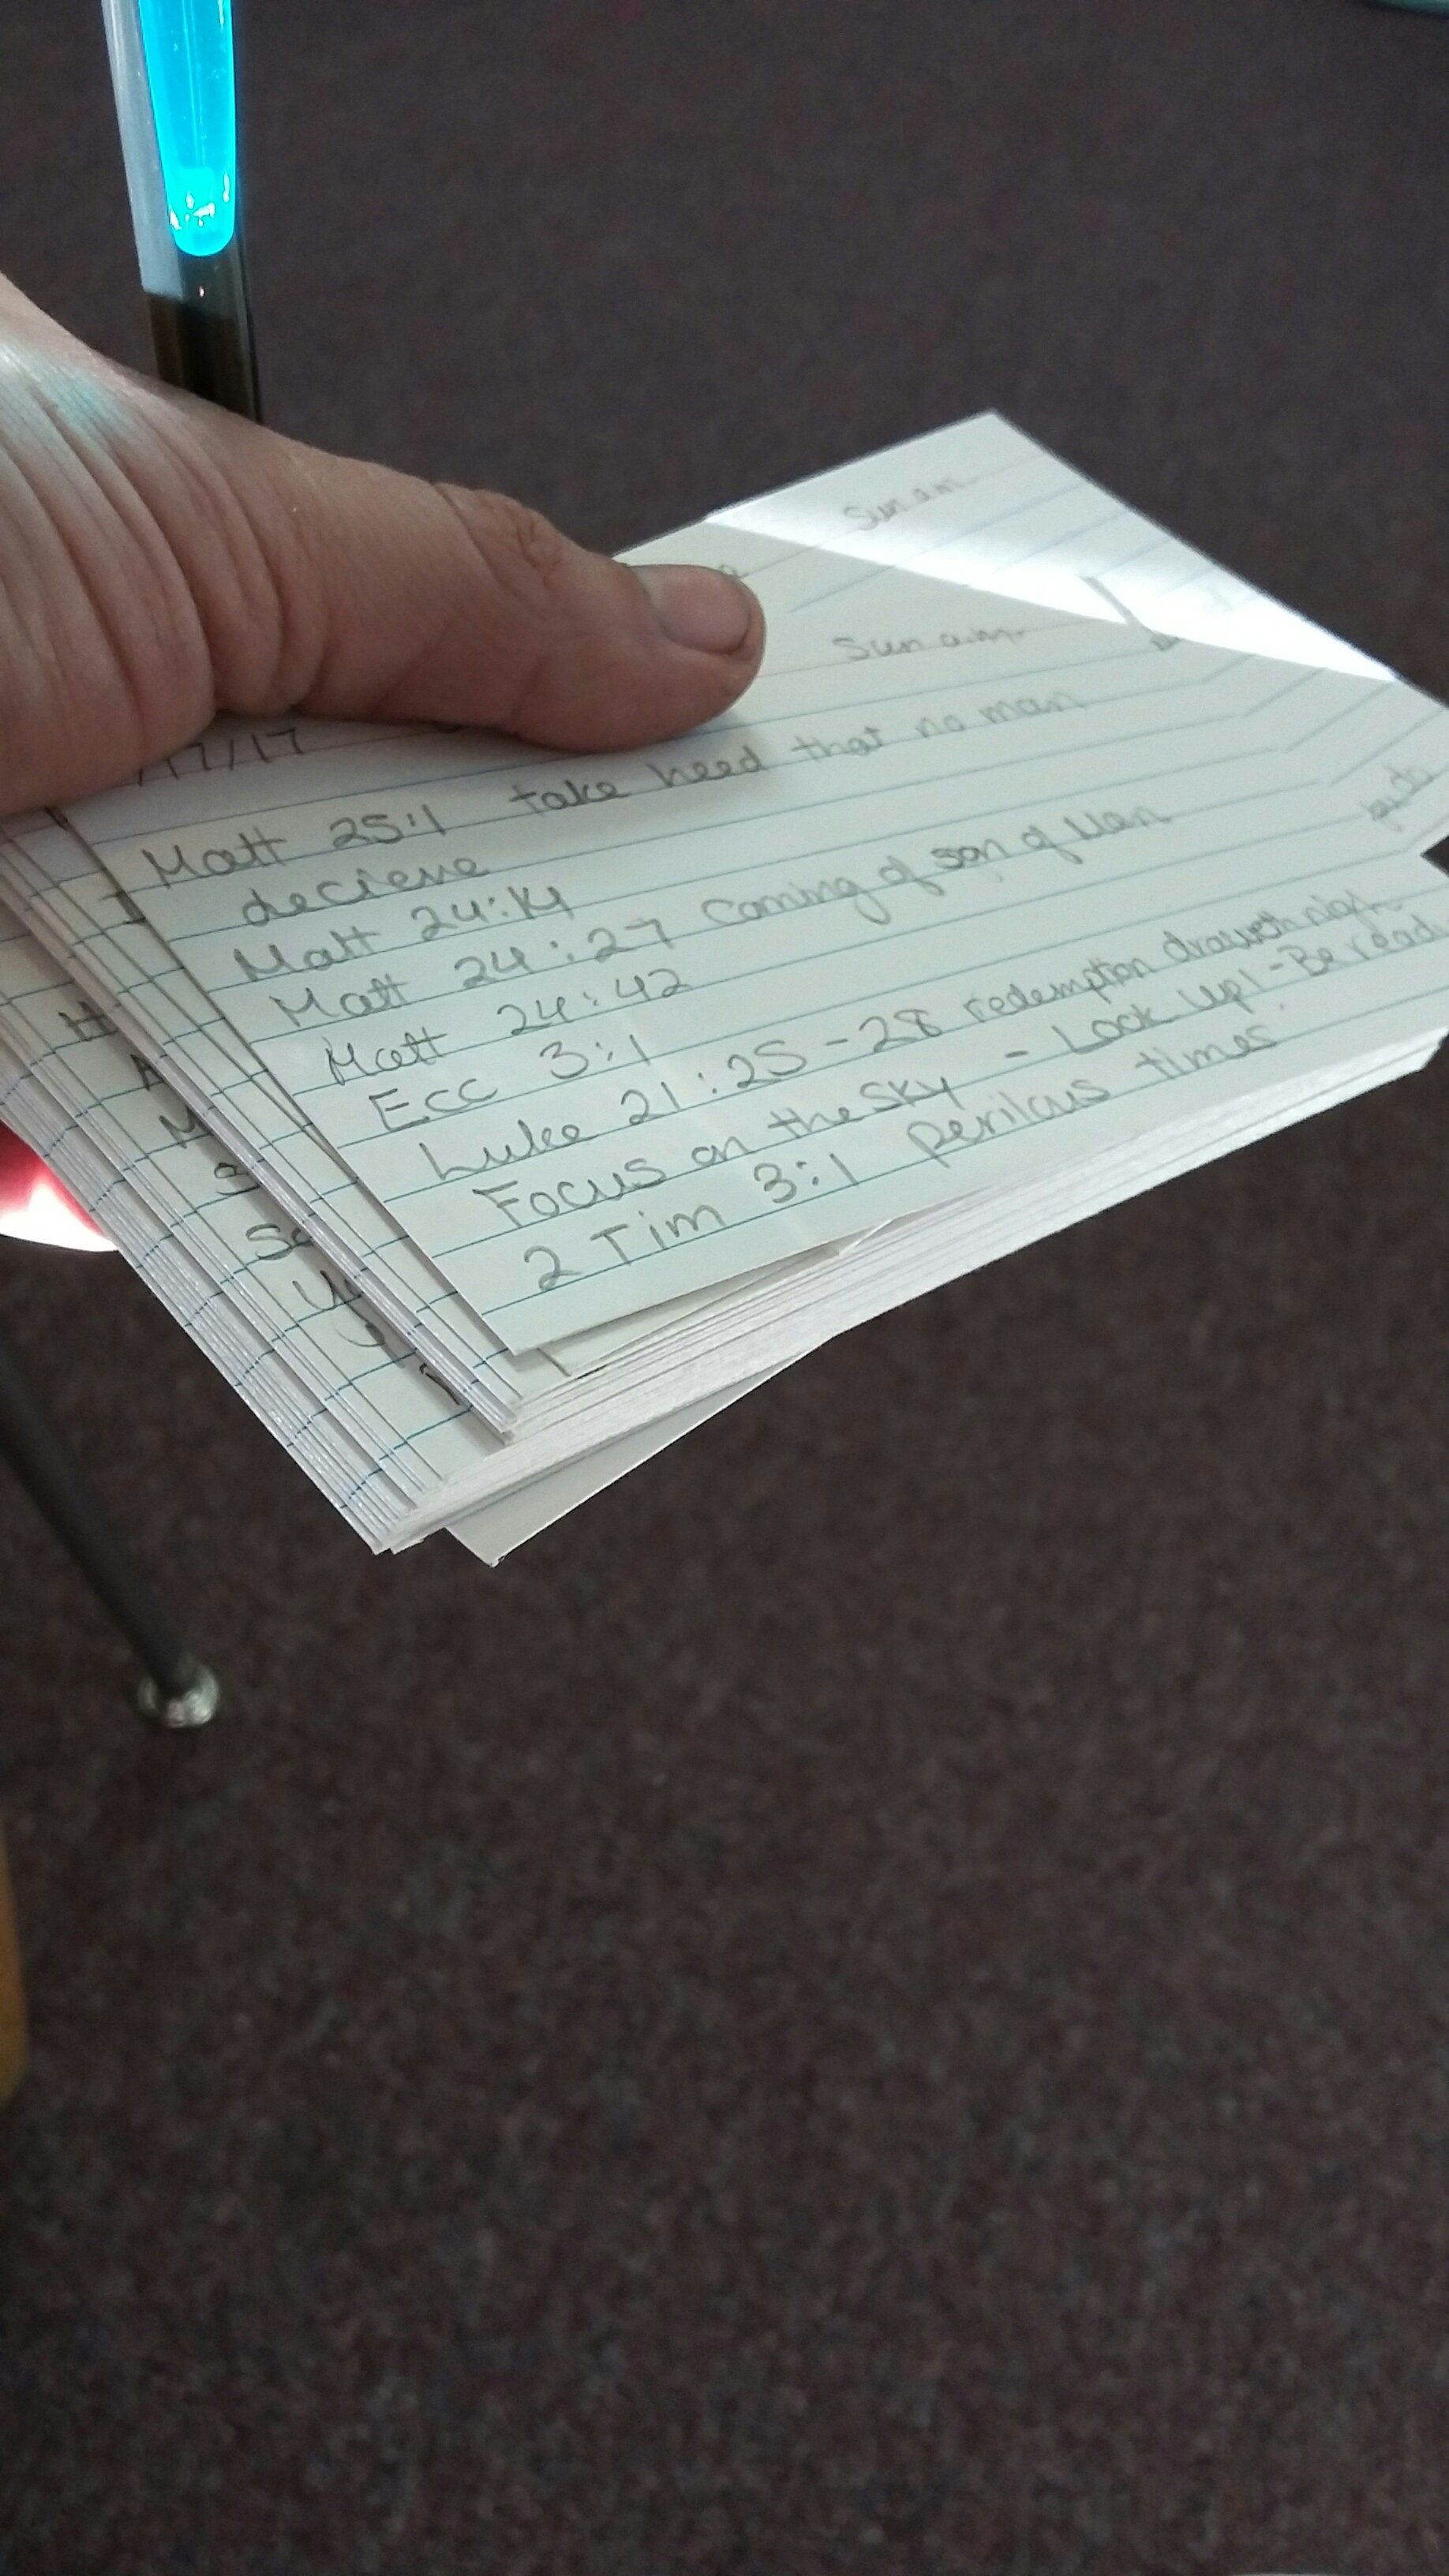 Sun am
Sun a.m.
/17/17
Matt 25:1 take heed that no man
decieve
Matt 24:14
Matt 24:27 Coming of son of Man
Matt 24:42
Ecc 3:1
Luke 21:25-28 redemption draweth nigh
Focus on the sky - Look Up! - Be ready
2 Tim 3:1 perilous times